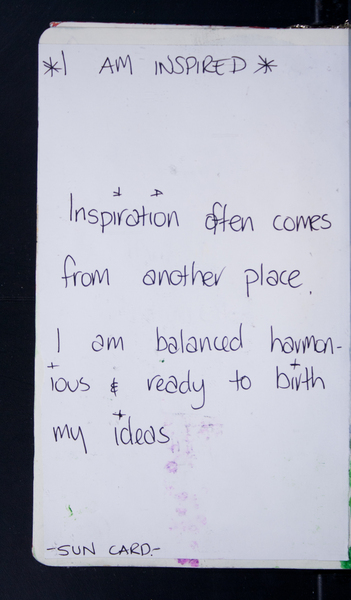 *I AM INSPIRED*
Inspiration often comes
from another place.
I am balanced harmon-
ious & ready to birth
my ideas
-SUN CARD.-